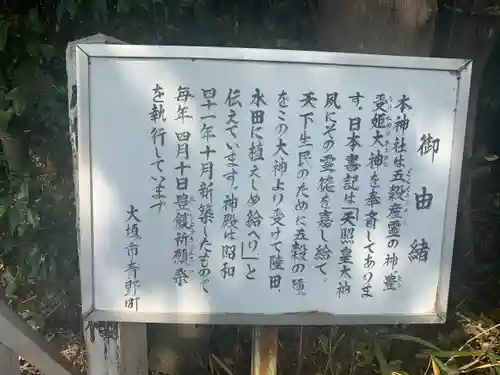 御由緒
本神社は五穀産霊の神、豊
受姫大神を奉斎してありま
す。日本書記は「天照皇大神
夙にその霊徳を嘉し給て、
天下生民のために五穀の種
をこの大神より受けて陸田、
水田に植えしめ給へり」と
伝えています。神殿は昭和
四十一年十月新築したもので
毎年四月十日豊饌祈願祭
を執行しています
大垣市青野町